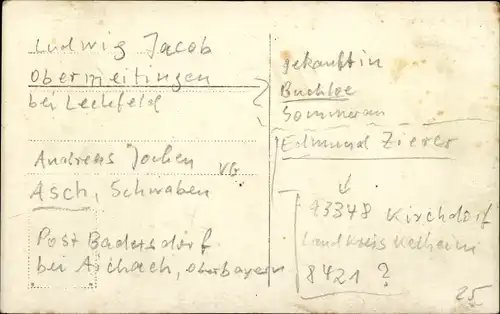 Ludwig Jacob
Obermeitingen
bei Lechfeld
Andreas Jochen VG
Asch, Schwaben
Post Badersdorf
bei Aichach, Oberbayern
gekauft in
Buchloe
Sommerau
Edmund Zierer
93348 Kirchdorf
Landkreis Kelheim
8421 ?
25